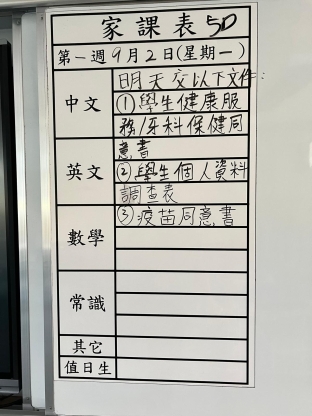 家課表 5D
第一週 9月2日(星期一)
中文
明天交以下文件:
①學生健康服
務/牙科保健同
英文
意書
②學生個人資料
調查表
數學
③疫苗同意書
常識
其它
值日生